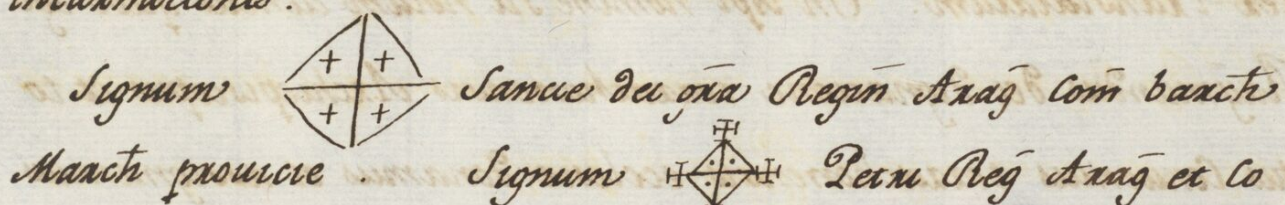 Signum Sancie dei gr̄a Regin̄ Araḡ Com̄ barch̄
March̄ prouicie . Signum Petri Reḡ Araḡ et Co